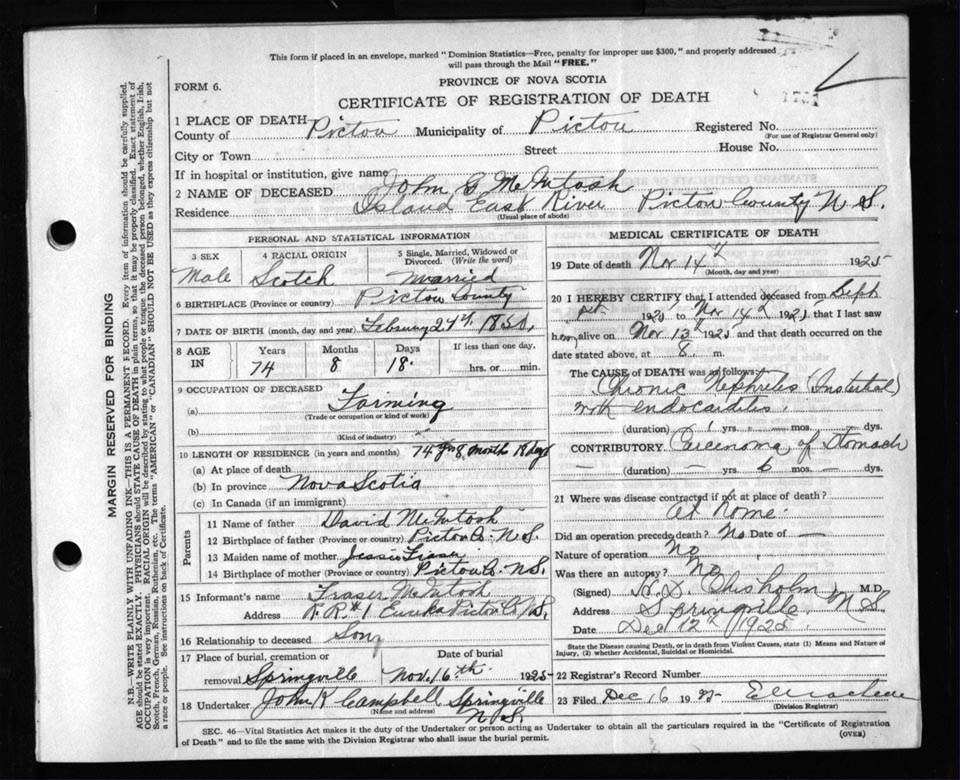 This form if placed in an envelope, marked "Dominion Statistics—Free, penalty for improper use $300," and properly addressed
will pass through the Mail "FREE."
FORM 6.
PROVINCE OF NOVA SCOTIA
CERTIFICATE OF REGISTRATION OF DEATH
1 PLACE OF DEATH
County of Pictou Municipality of Pictou Registered No.
(For use of Registrar General only)
City or Town Street House No.
If in hospital or institution, give name
2 NAME OF DECEASED John G McIntosh
Residence Island East River Pictou County N. S.
(Usual place of abode)
PERSONAL AND STATISTICAL INFORMATION
3 SEX 4 RACIAL ORIGIN 5 Single, Married, Widowed or Divorced. (Write the word)
Male Scotch Married
6 BIRTHPLACE (Province or country) Pictou County
7 DATE OF BIRTH (month, day and year)
8 AGE IN Years Months Days If less than one day,
74 8 18 hrs. or min.
9 OCCUPATION OF DECEASED
(a) Farming
(Trade or occupation or kind of work)
(b)
(Kind of industry)
10 LENGTH OF RESIDENCE (in years and months) 74 yrs 8 months 18 days
(a) At place of death
(b) In province Nova Scotia
(c) In Canada (if an immigrant)
Parents
11 Name of father David McIntosh
12 Birthplace of father (Province or country) Pictou Co. N. S.
13 Maiden name of mother Jessie Fraser
14 Birthplace of mother (Province or country) Pictou Co. N.S.
15 Informant's name Fraser McIntosh
Address R.R. #1 Eureka Pictou Co N.S.
16 Relationship to deceased Son
17 Place of burial, cremation or Date of burial
removal Springville Nov. 16th 1925
18 Undertaker John K Campbell Springville
(Name and address) N.S.
MEDICAL CERTIFICATE OF DEATH
19 Date of death Nov 14th 1925
(Month, day and year)
20 I HEREBY CERTIFY that I attended deceased from Sept
1925 to Nov 14th 1925 that I last saw
him alive on Nov 13th 1925 and that death occurred on the
date stated above, at 8 m.
The CAUSE of DEATH was as follows:
Chronic Nephritis (Insterstitial)
with endocarditis.
(duration) 1 yrs. mos. dys.
CONTRIBUTORY Carcinoma of Stomach
— (duration) — yrs. 6 mos. — dys.
21 Where was disease contracted if not at place of death?
At home.
Did an operation precede death? No Date of —
Nature of operation No
Was there an autopsy? No
(Signed) Chisholm M.D.
Address Springville N S
Date Dec 12th 1925
State the Disease causing Death, or in death from Violent Causes, state (1) Means and Nature of
Injury, (2) whether Accidental, Suicidal or Homicidal.
22 Registrar's Record Number
23 Filed Dec 16 1925
(Division Registrar)
SEC. 46—Vital Statistics Act makes it the duty of the Undertaker or person acting as Undertaker to obtain all the particulars required in the "Certificate of Registration
of Death" and to file the same with the Division Registrar who shall issue the burial permit.
(OVER)
MARGIN RESERVED FOR BINDING
N.B.—WRITE PLAINLY WITH UNFADING INK—THIS IS A PERMANENT RECORD. Every item of information should be carefully supplied.
AGE should be stated EXACTLY. PHYSICIANS should STATE CAUSE OF DEATH in plain terms, so that it may be properly classified. Exact statement of
OCCUPATION is very important. RACIAL ORIGIN will be described by stating to what people or tongue the deceased person belonged, whether English, Irish,
Scotch, French, German, Russian, Ruthenian, etc. The terms "AMERICAN" or "CANADIAN" SHOULD NOT BE USED as they express citizenship but not
a race or people. See instructions on back of Certificate.